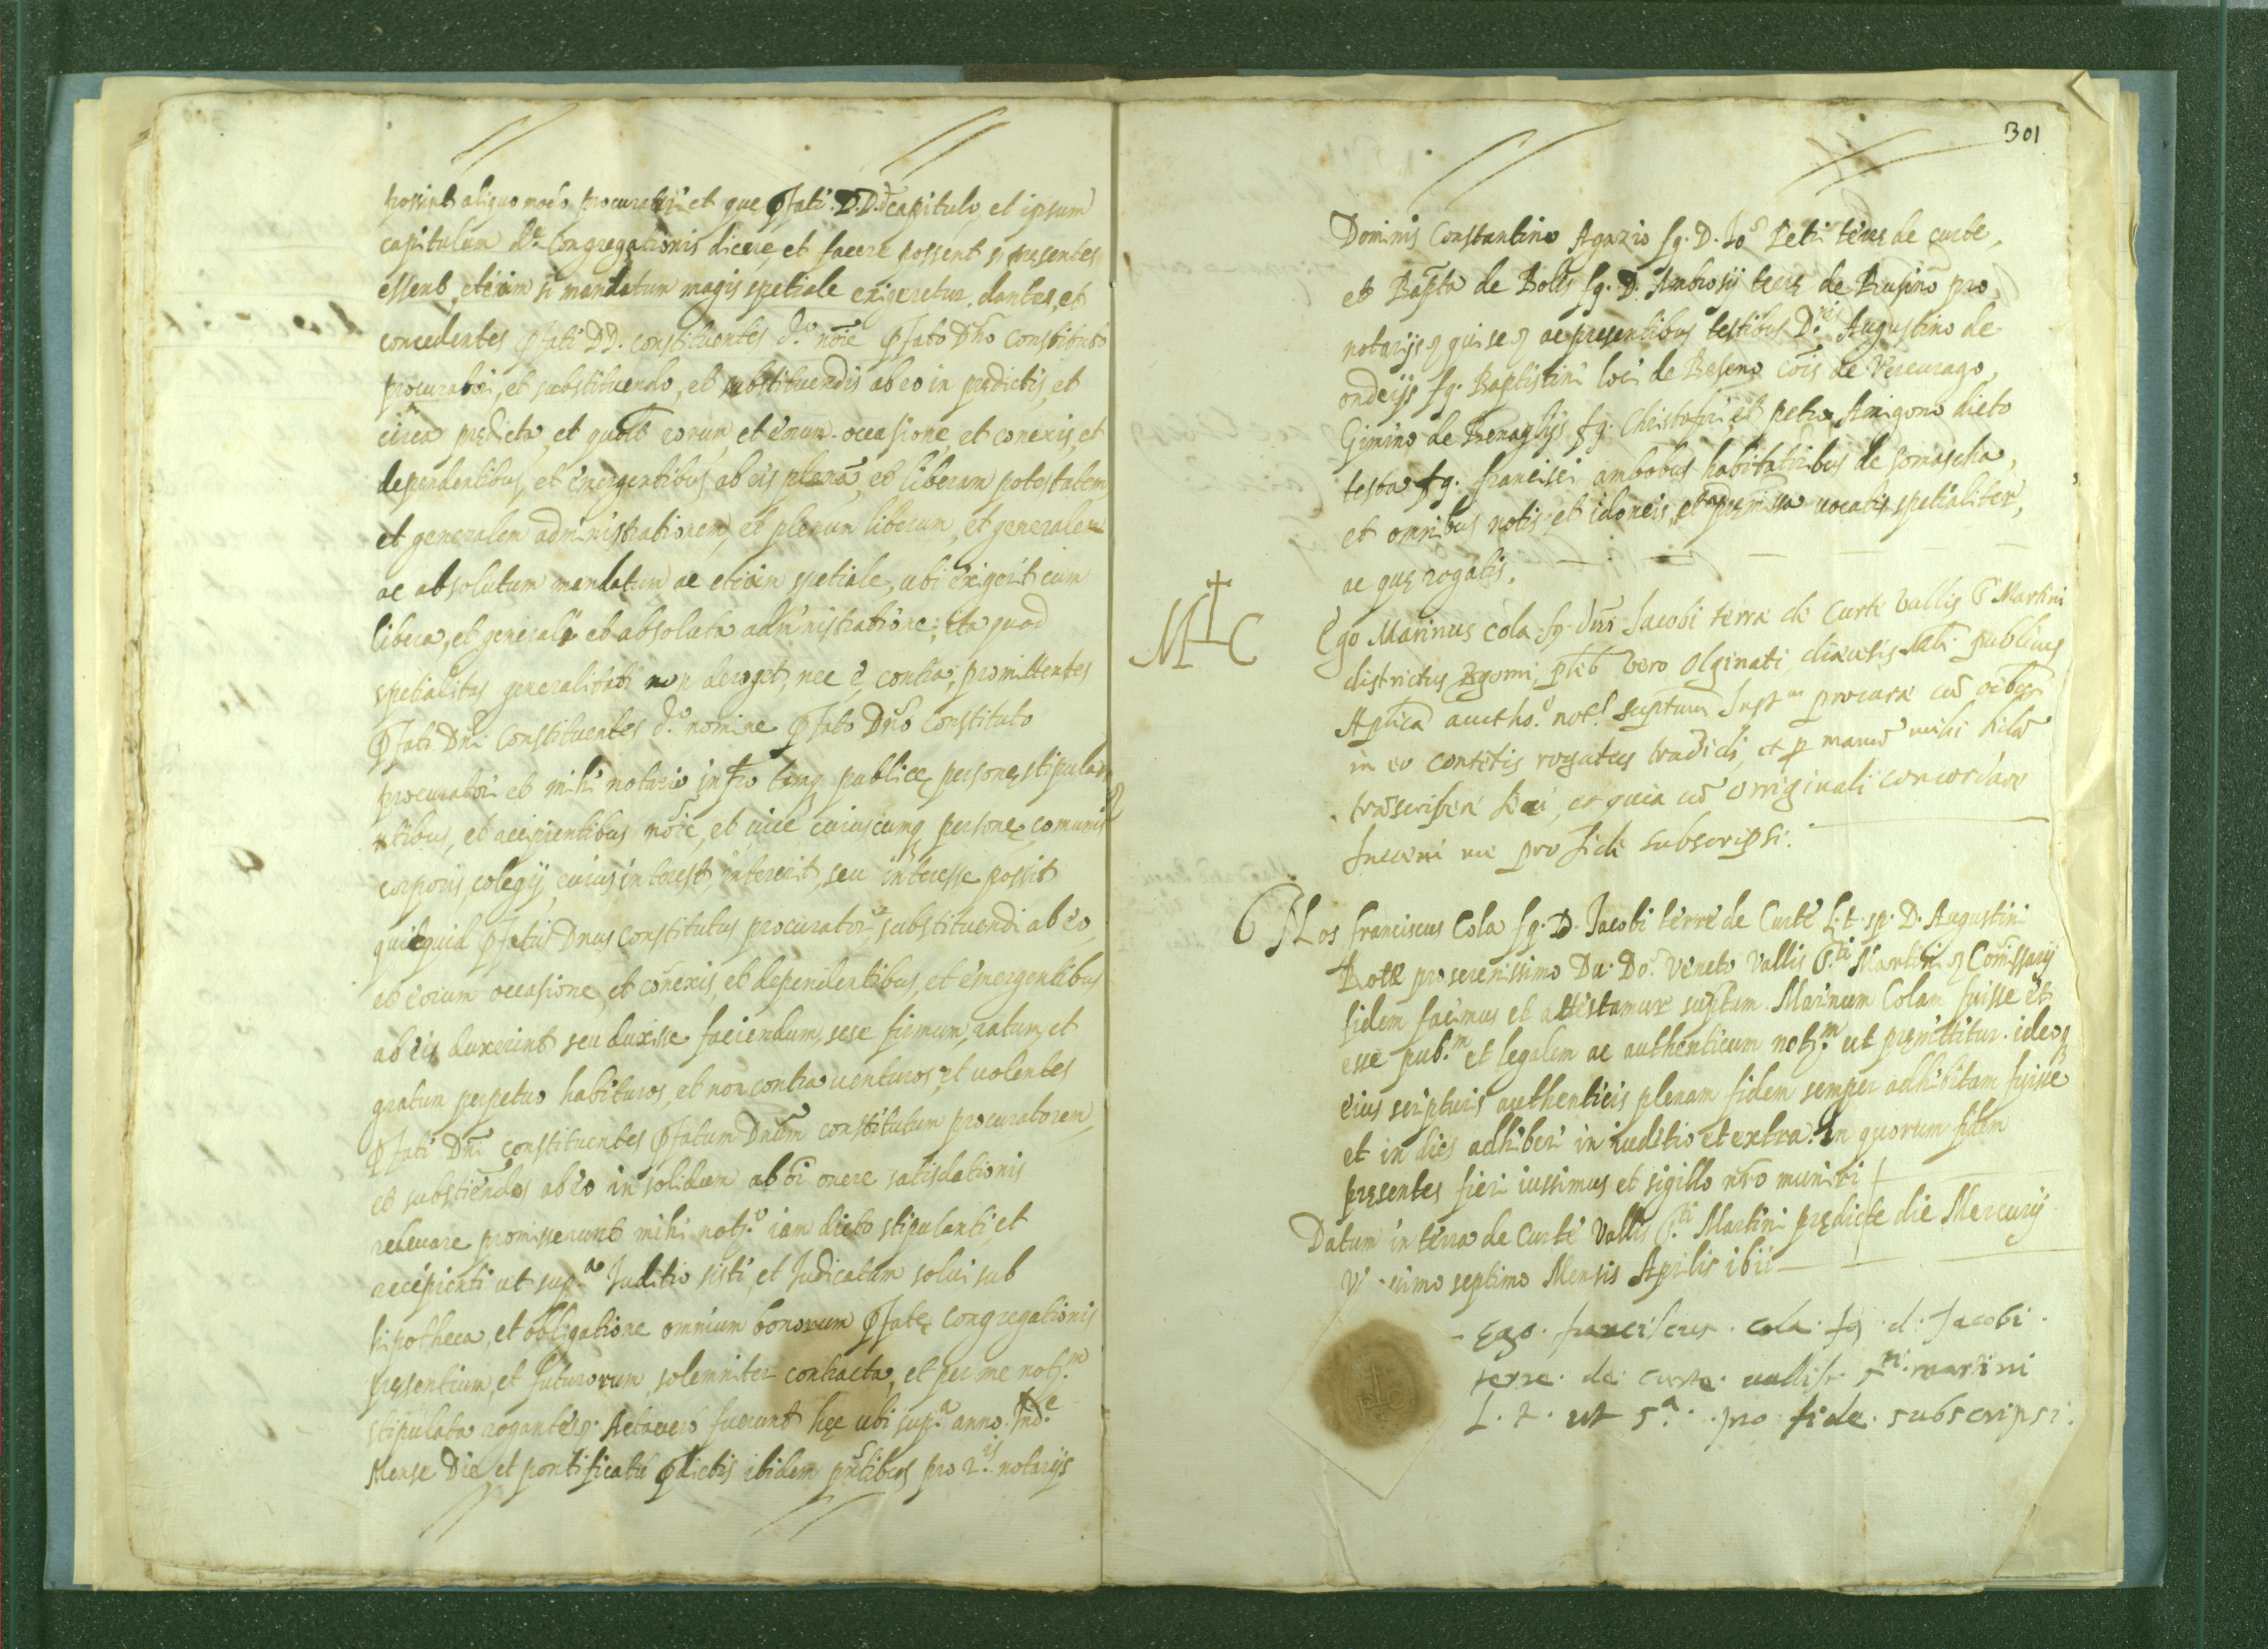 possint aliquo modo procuratores et que pfati D.D. capitulo, et ipsum
capitulum d.e Congregationis dicere, et facere possent si presentes
essent, etiam si mandatum magis spetiale exigeretur, dantes, et
concedentes pfati DD. constituentes d.o noie pfato Dno Constituto
procuratori, et substituendo, et substituendis ab eo in predictis, et
circa predicta, et quodlt eorum et earum occasione, et conexis, et
dependentibus, et emergentibus ab eis plenã, et liberam potestatem,
et generalem administrationem, et plenum liberum, et generalem
ac absolutum mandatum ac etiam spetiale, ubi exigerit cum
libera, et generali et absoluta administratione; ita quod
spetialitas generalitati non deroget, nec è contra; promittentes
pfati Dni Constituentes d.o nomine pfato Dno Constituto
procuratori et mihi notario infro tanq publice persone stipula
ntibus, et recipientibus noie, et vice cuiuscumq persone, comunis
corporis, colegij, cuius interest, intererit, seu interesse possit
quidquid pfatus Dnus Constitutus procurator substituendi ab eo,
et eorum occasione, et conexis, et dependentibus, et emergentibus
ab eis duxerint seu duxisse faciendum, sese firmum, ratum, et
gratum perpetuo habituros, et non contra venturos; et volentes
pfati Dni constituentes pfatum Dnum constitutum procuratorem,
et substiendos ab eo in solidum ab oi onere satisdationis
relevare promisserunt mihi not.o iam dicto stipulanti, et
recipienti ut sup.a Juditio sisti, et Judicatum solui sub
hipotheca, et obligatione omnium bonorum pfate Congregationis
presentium, et futurorum, solemniter contracta, et per me not.m
stipulata rogantes. Acta vero fuerunt hec ubi sup.a anno Ind.e
Mense Die, et pontificatu pdictis ibidem pntibus pro 2.is notarijs
301
Dominis Constantino Agazio fq. D. Jo Petri terre de curte,
et Bapta de Bolis fq. D. Ambrosij terre de Rusino pro
notarijs, ac presentibus testibus D.nis Augustino de
onderijs fq. Baptistini loci de Beseno cõis de Vercurago,
Gimino de Benaglijs fq. Christofori et petro Amigono dicto
testa fq. francisci ambobus habitatoribus de somascha,
et omnibus notis et idoneis, et ad premissa vocatis spetialiter,
ac que rogatis.
M C
Ego Marinus Cola fq. dni Jacobi terre de Curte Vallis S. Martini
districtus Bgomi, pleb vero Olginati diocesis publicus
Aplica autho.e not.s suptum Inst.m procure cũ oibus
in eo contetis rogatus tradidi, et p manũ mihi fidã
trãscribere feci, et quia cũ originali concordare
Inveni me pro fide subscripsi.
Nos franciscus Cola fq. D. Jacobi terre de Curte L.t. sp. D. Augustini
Rote pro serenissimo Du. Do. Veneto Vallis S.ti Martini Comissarij
fidem facimus et attestamur suptum. Marinum Colam fuisse et
esse pub.m et legalem ac authenticum not.m ut premittitur. ideoq
eius scripturis authenticis plenam fidem semper adhibitam fuisse
et in dies adhiberi in iuditio et extra. In quorum fidem
presentes fieri iussimus et sigillo nro muniri
Datum in terra de Curte Vallis S.ti Martini predicte die Mercurij
simo septimo Mensis Aprilis
Ego. franciscus. cola. fq. d. Jacobi.
terre. de. curte. vallis. s.ti martini
L. t. ut s.a pro fide. subscripsi.